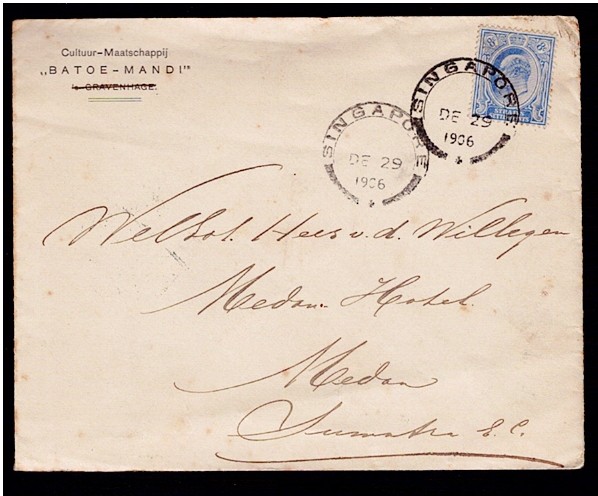 Cultuur-Maatschappij
„BATOE-MANDI"
's GRAVENHAGE.
SINGAPORE
DE 29
1906
SINGAPORE
DE 29
1906
STRAITS
Welhol. Heer v. d. Willegen
Medan Hotel
Medan
Sumatra E.C.